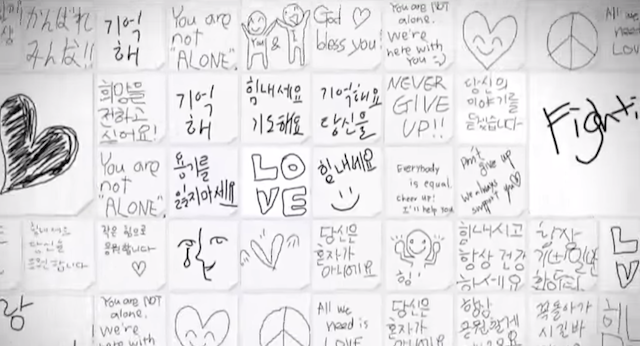 がんばれ
みんな!!
기억
해
You are
not
"ALONE".
You &
God
bless you!
You are NOT
alone.
We're
here with
you :)
All we
need
LOVE
희망을
전하고
싶어요!
기억
해
힘내세요
기도해요
기억해요
당신을
NEVER
GIVE
UP!!
당신의
이야기를
듣겠습니다
Fighti
You are
not
"ALONE".
용기를
잃지마세요
LO
VE
힘내세요
Everybody
is equal.
cheer up!
I'll help
Don't give up
We always
support you
힘내세요
당신을
응원합니다
작은 힘으로
응원합니다
당신은
혼자가
아니에요
힘!
힘내시고
항상 건강
하세요
항상
L
V
랑
You are NOT
alone.
We're
here with
All we
need is
LOVE
당신은
혼자가
아니에요
항상
응원할게